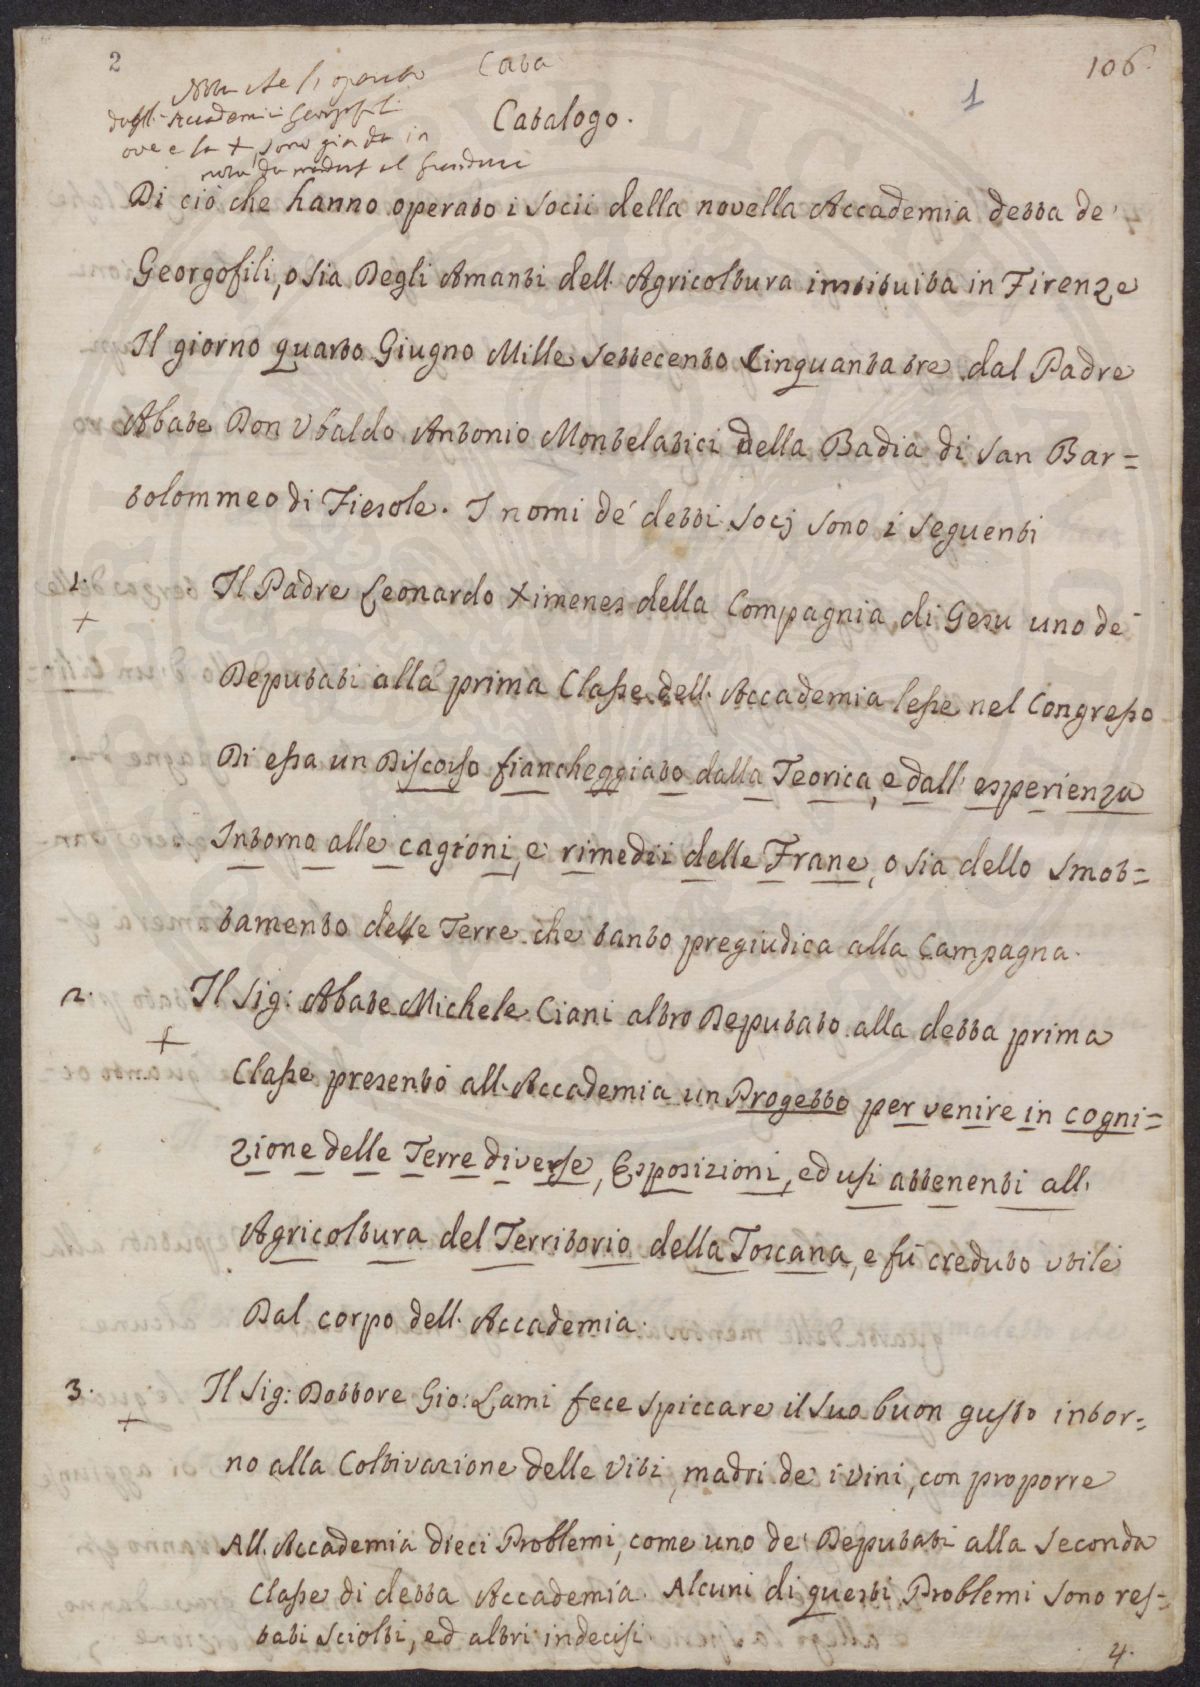 2
Cata
106.
1
Nota che li operati
degl. Accademici Georgofili
ove e la +, sono gia da in
nota da
Catalogo.
Di ciò che hanno operato i Socii della novella Accademia detta de'
Georgofili, o sia Degli Amanti dell. Agricoltura instituita in Firenze
Il giorno quarto Giugno Mille Settecento Cinquanta tre dal Padre
Abate Don Vbaldo Antonio Montelatici della Badia di San Bar=
tolommeo di Fiesole. I nomi de' detti Socj sono i seguenti
1. Il Padre Leonardo Ximenes della Compagnia di Gesu uno de'
+
Deputati alla prima Classe dell. Accademia lesse nel Congresso
Di essa un Discorso fiancheggiato dalla Teorica, e dall' esperienza
Intorno alle cagioni, e rimedii delle Frane, o sia dello Smot=
tamento delle Terre che tanto pregiudica alla Campagna.
2. Il Sig: Abate Michele Ciani altro Deputato alla detta prima
+
Classe presentò all. Accademia un Progetto per venire in cogni=
zione delle Terre diverse, Esposizioni, ed usi attenenti all.
Agricoltura del Territorio della Toscana, e fù creduto vtile
Dal corpo dell. Accademia.
3. Il Sig: Dottore Gio: Lami fece spiccare il suo buon gusto intor=
+
no alla Coltivazione delle Viti, madri de' i vini, con proporre
All. Accademia dieci Problemi, come uno de' Deputati alla Seconda
Classe di detta Accademia. Alcuni di questi Problemi sono res=
tati sciolti, ed altri indecisi.
4.